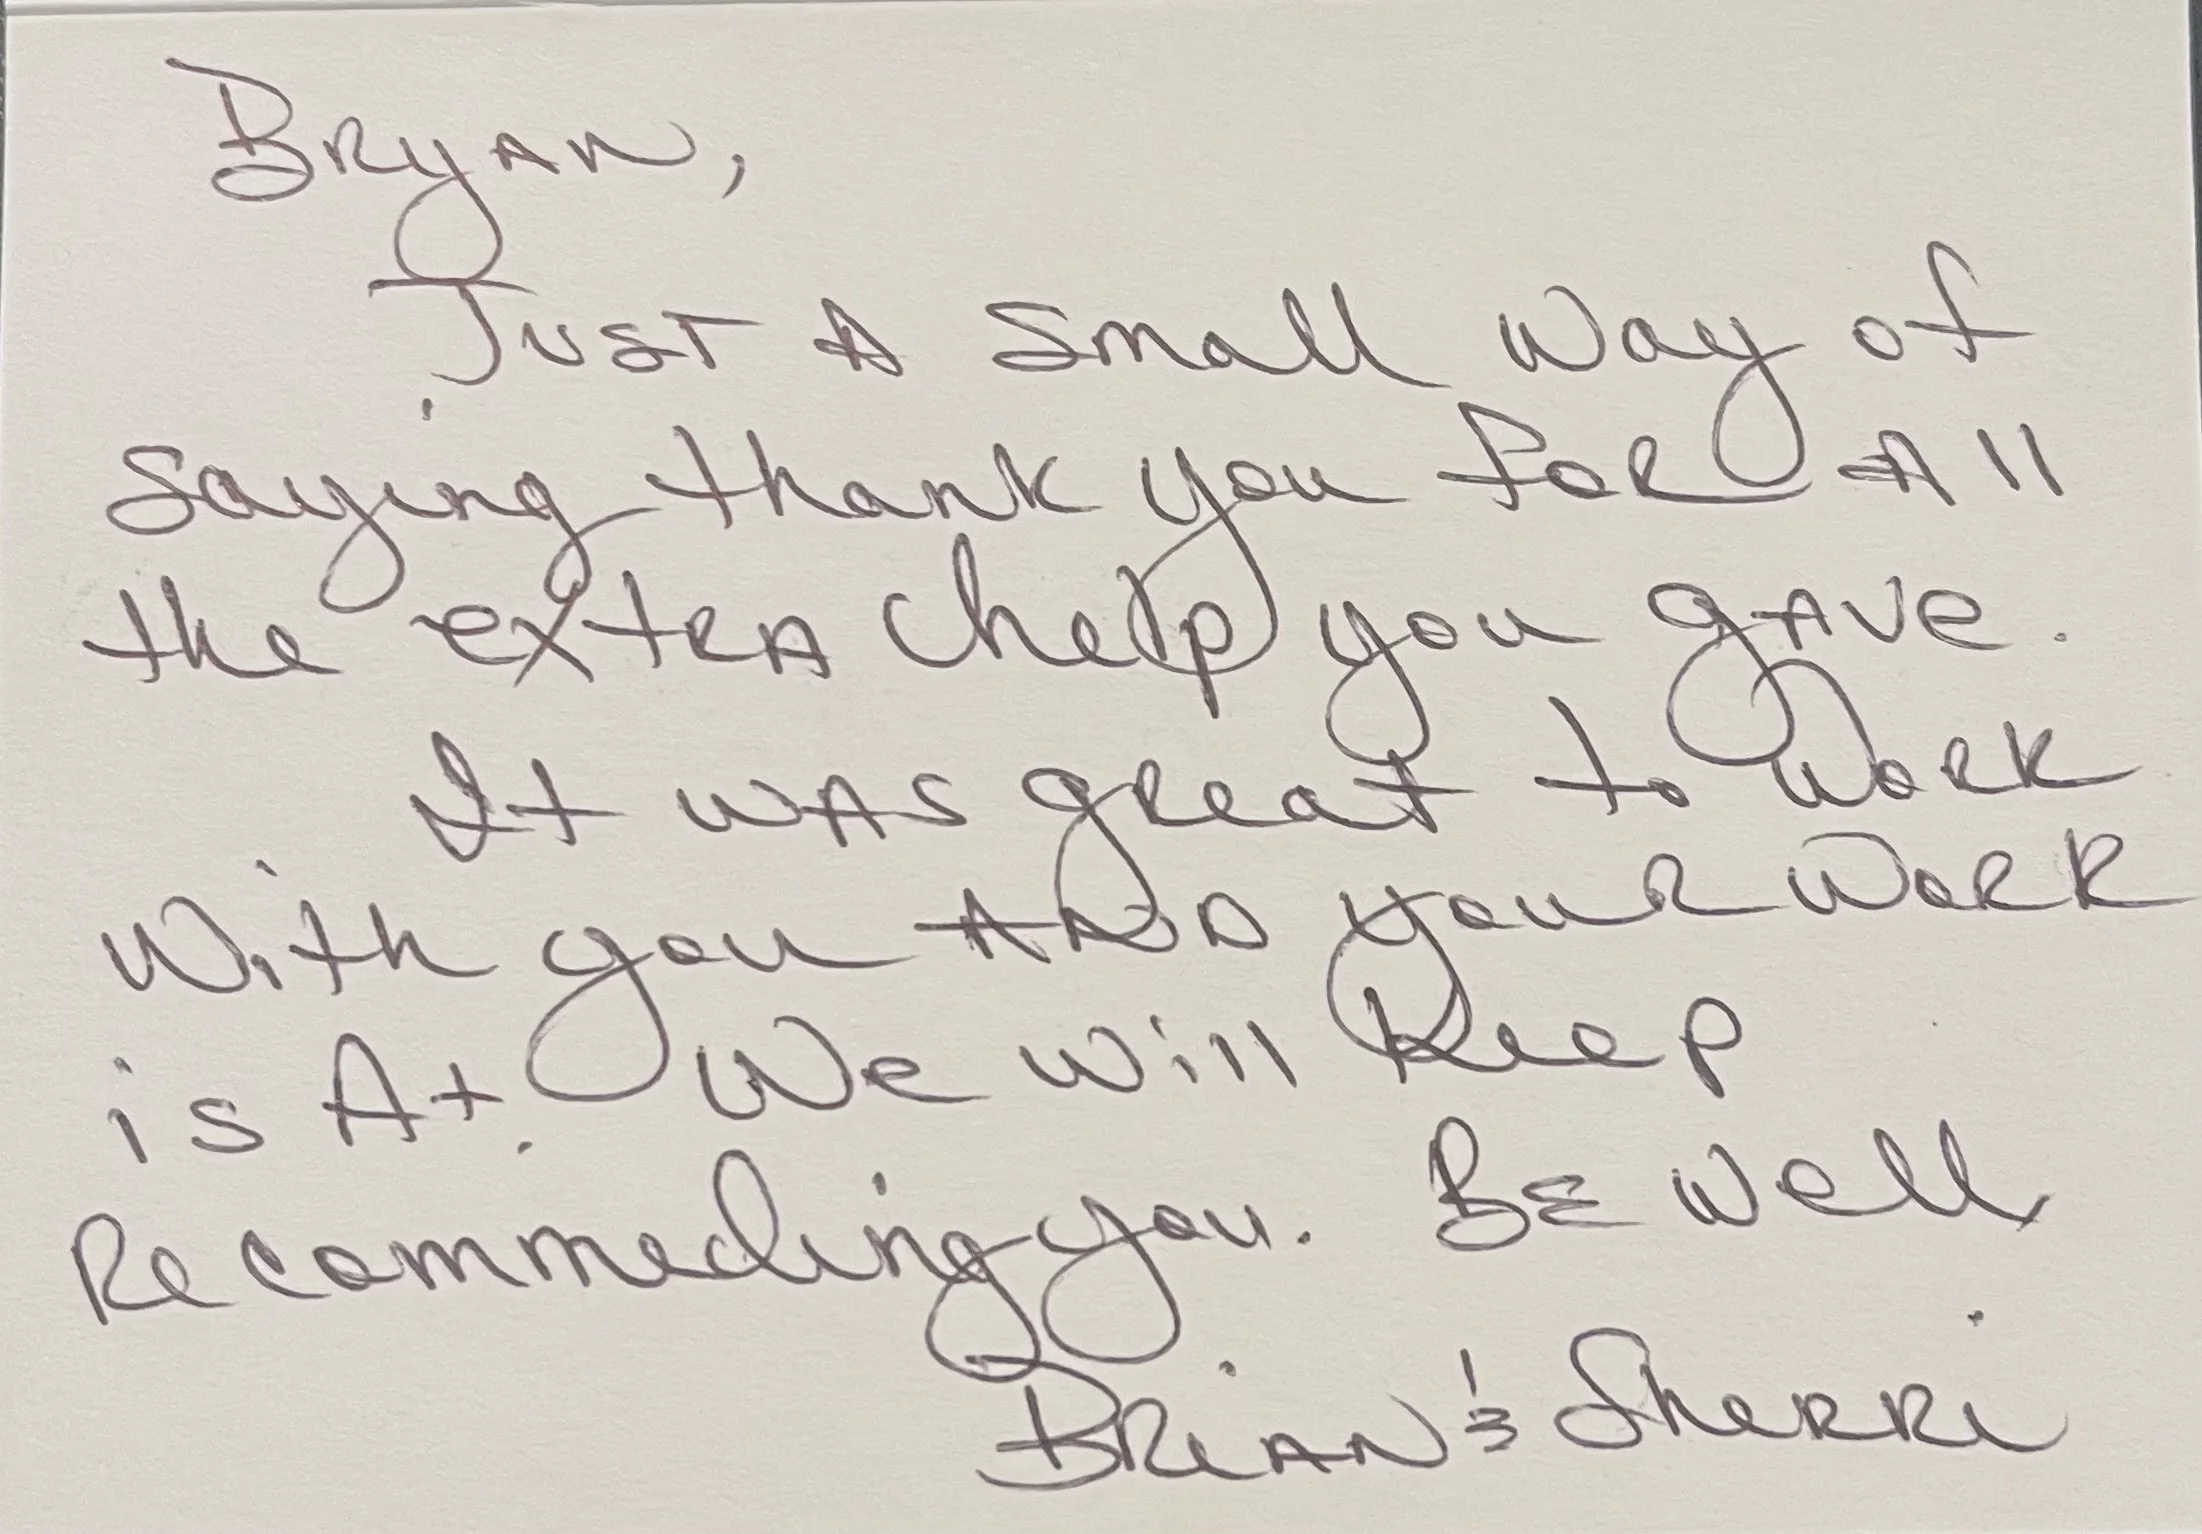 Bryan,
Just A Small Way of
Saying thank you for All
the extra help you gave.
It was great to work
With you AND your Work
is A+. We will Keep
Recommeding you. BE Well,
Brian & Sherri